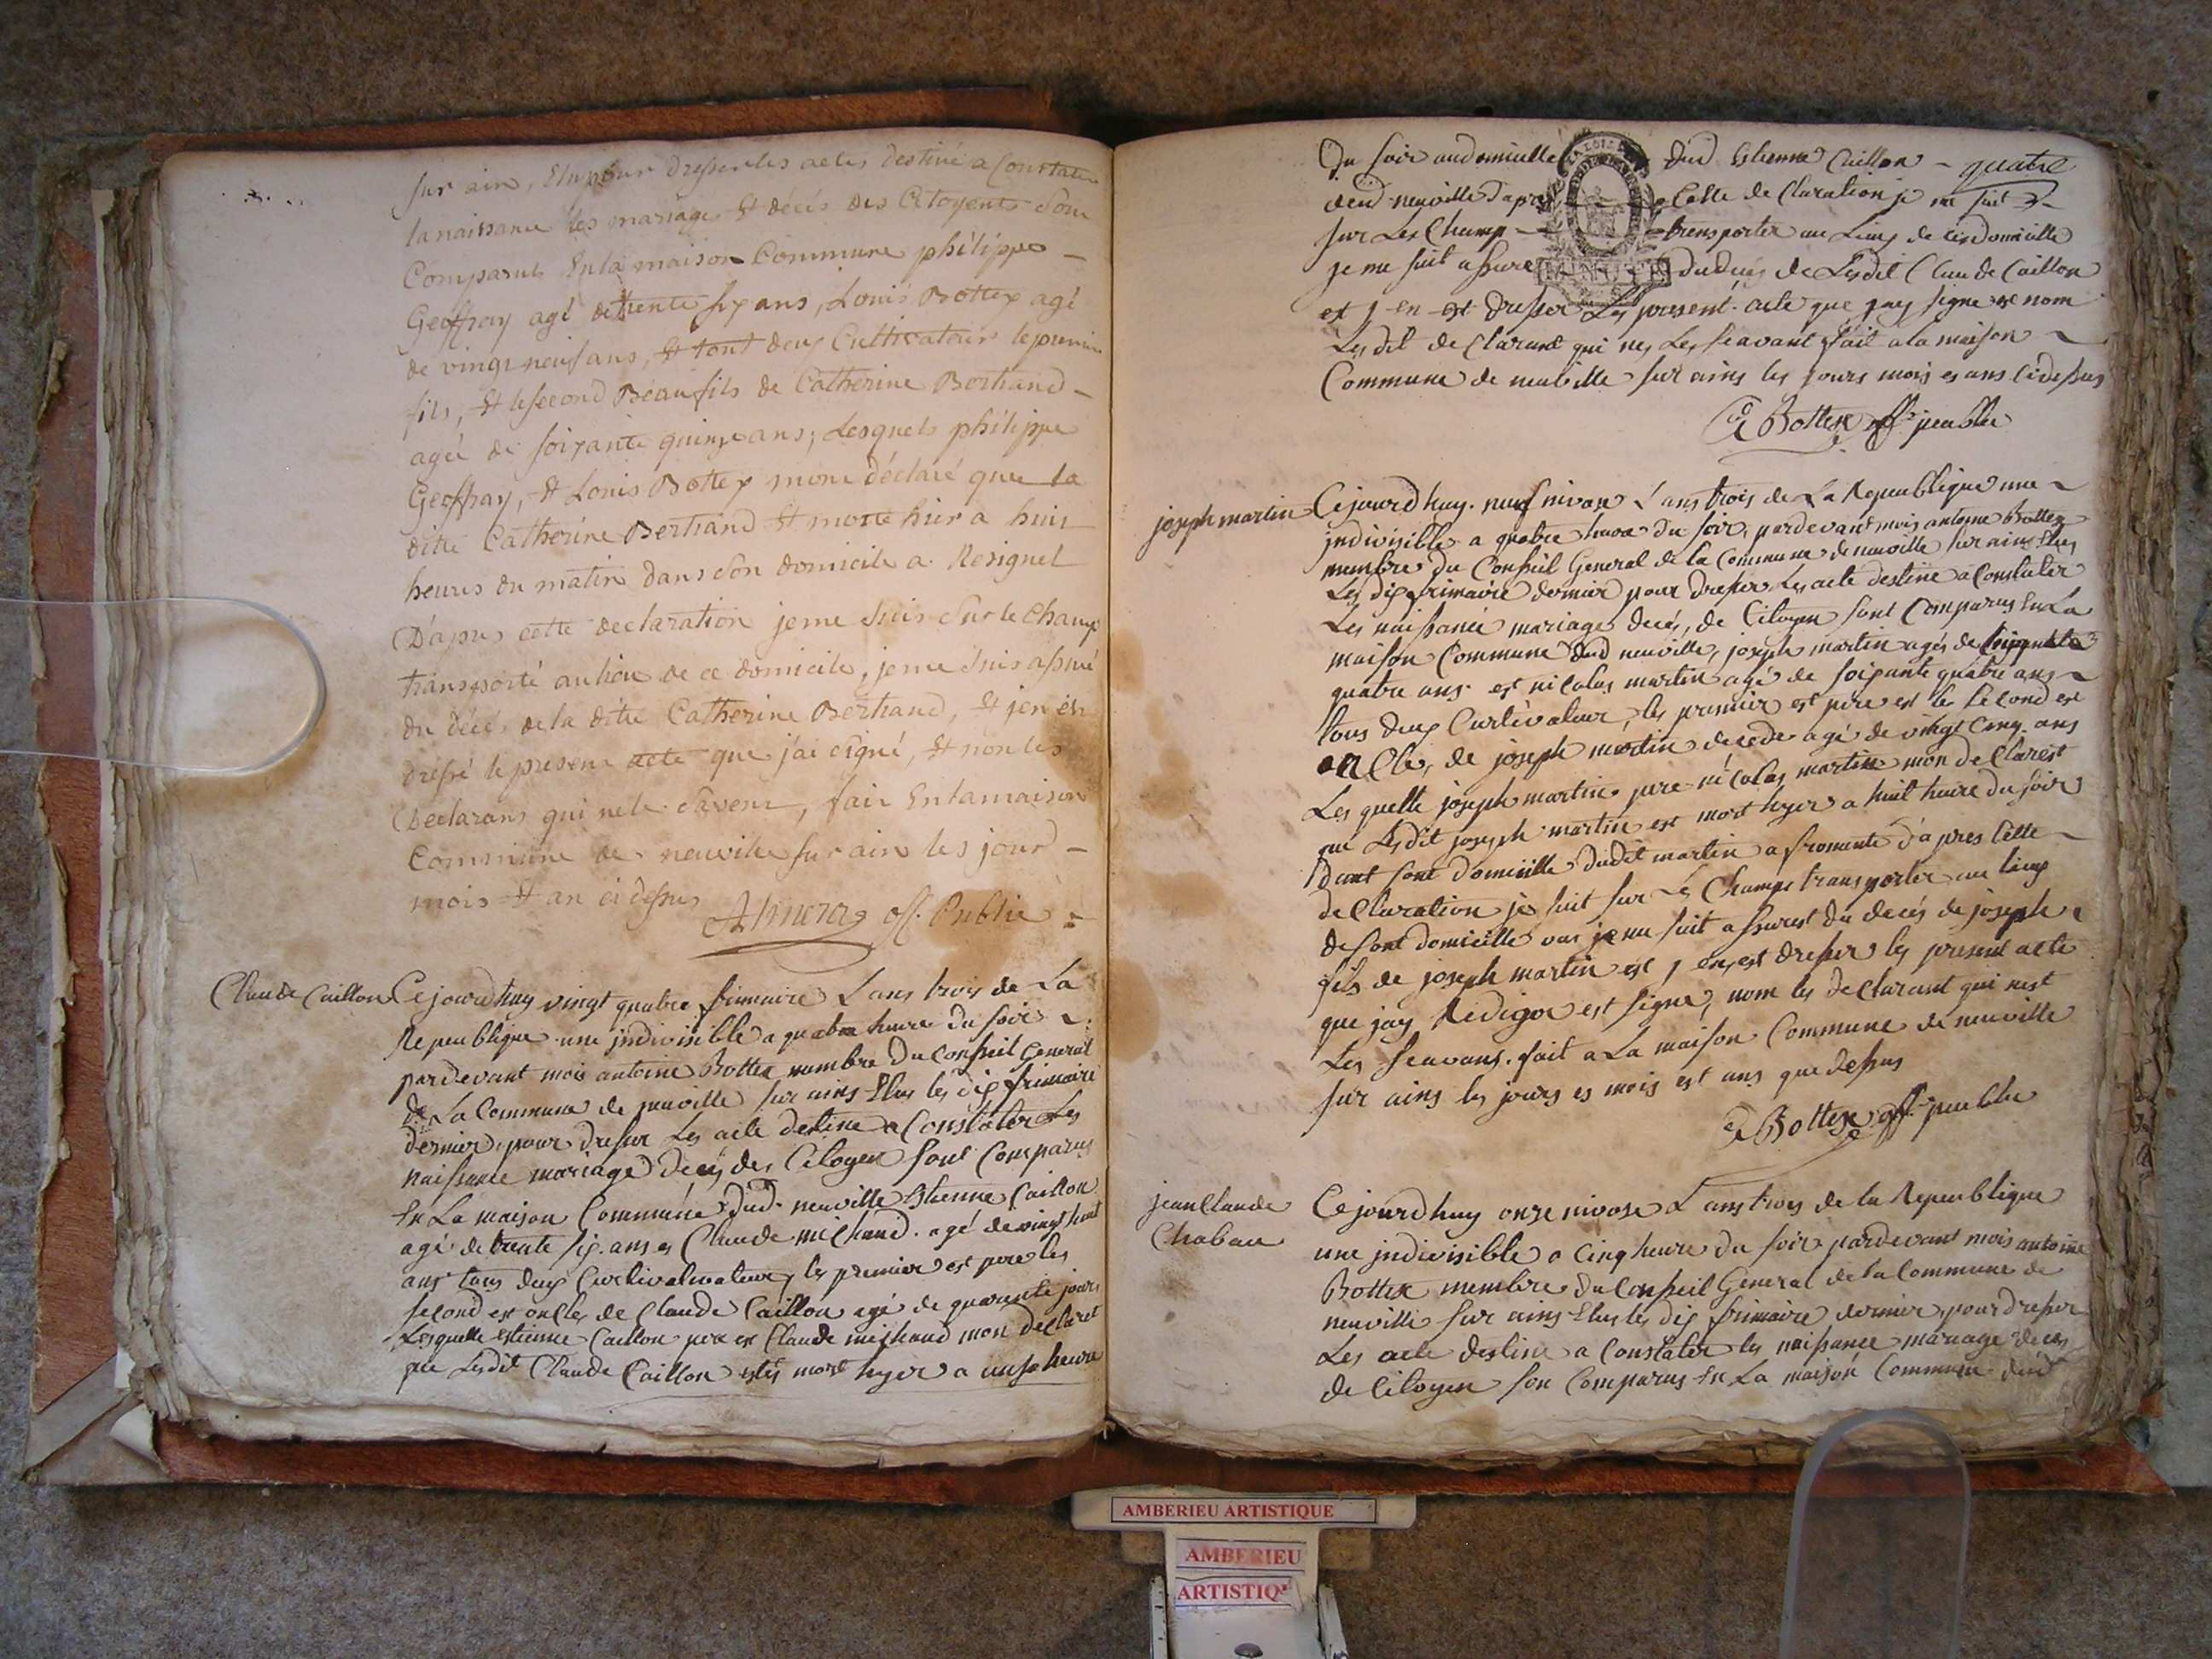 sur ain, Elu pour dresser les actes destiné a Constater
la naissance les mariages et décés des Citoyents Sont
Comparuts En la maison Commune philippe
Geoffray agé de trente six ans, Louis Bottex agé
de vingt neuf ans, et tout deux Cultivateurs le premier
fils, et le second Beaufils de Catherine Bertrand
agée de soixante quinze ans; Lesquels philippe
Geoffray, et Louis Bottex mont déclaré que la
ditte Catherine Bertrand Et morte hier a huit
heures du matin dans son domicile a Resignel
D'apres cette declaration je me suis sur le champ
transporté au lieu de ce domicile, je me suis assuré
du décés de la ditte Catherine Bertrand, et j'en ên
dressé le present acte que j'ai signé, et non les
Déclarans qui ne le savent, fait En la maison
Commune de neuville sur ain les jour
mois et an ci dessus
off. Public
Claude Caillon Cejourdhuy vingt quatre frimaire L ans trois de La
Republique une jndivisible a quatre heure du soir
pardevant mois antoine Bottex membre Du Conseil General
de La Commune de neuville sur ains Elus les dix frimaire
dernier pour dresser Les acte destine a Constater Les
naissance mariage décés des Citoyen sont Comparus
En La maison Commune dud. neuville Estienne Caillon
agé de trente six ans es Claude michaud agé de vingt huit
ans tous deux Curtivalivateur les premier est pere les
second est oncles de Claude Caillon agé de quarante jours
Lesquelle estienne Caillon pere est Claude michaud mon declarest
que Lesdit Claude Caillon estés mort hyer a unse heure
Du soir audomicille dud Estienne Caillon quatre
deud neuville Dapres Cette de Claration je me suit
sur Les Champ transporter au Lieux de cis domicille
je me suit assure du decés de Lesdit Claude Caillon
est j en est dresser Les present acte que jay signe et nom
Lesdit de Clarant qui nes Les seavant fait a la maison
Commune de neuville sur ains les jours mois es ans cidessus
A Bottex off peublie
joseph martin Cejourdhuy neuf nivose L ans trois de La Republique une
jndivisible a quatre heure du soir, pardevant mois antoine Bottex
membre du Conseil General de la Commune de neuville sur ains Elus
Les dix frimaire dernier pour dresser Les acte destine a Constater
Les naissance mariage decés, de Citoyen sont Comparus En La
maison Commune dud neuville, joseph martin agés de Cinquante
quatre ans est nicolas martin agé de soixante quatre ans
tous deux Curtivateur, les premier est pere est les second est
onCles, de joseph martin decede agé de vingt Cinq ans
Les quelle joseph martin pere nicolas martin mon declarest
que Lesdit joseph martin est mort hyer a huit heure du soir
dant sont domicille dudit martin a fromente d'apres Cette
de Claration je suit sur Les Champs transporter au lieux
de sont domicille ous je me suit assurest du decés de joseph
fils de joseph martin est j en est dresser les present acte
que jay Redigee est signe, nom les declarant qui nest
Les seavans. fait a La maison Commune de neuville
sur ains les jours es mois est ans que dessus
A Bottex off peublie
jean Claude
Chabau
Cejourdhuy onze nivose L ans trois de la Republique
une jndivisible a cinq heure du soir pardevant mois antoine
Bottex membre du Conseil General de la Commune de
neuville sur ains Elus les dix frimaire dernier, pour dresser
Les acte destine a Constater les naissance mariage deces
de Citoyen son Comparus En La maison Commune dud
AMBERIEU ARTISTIQUE
AMBERIEU
ARTISTIQ